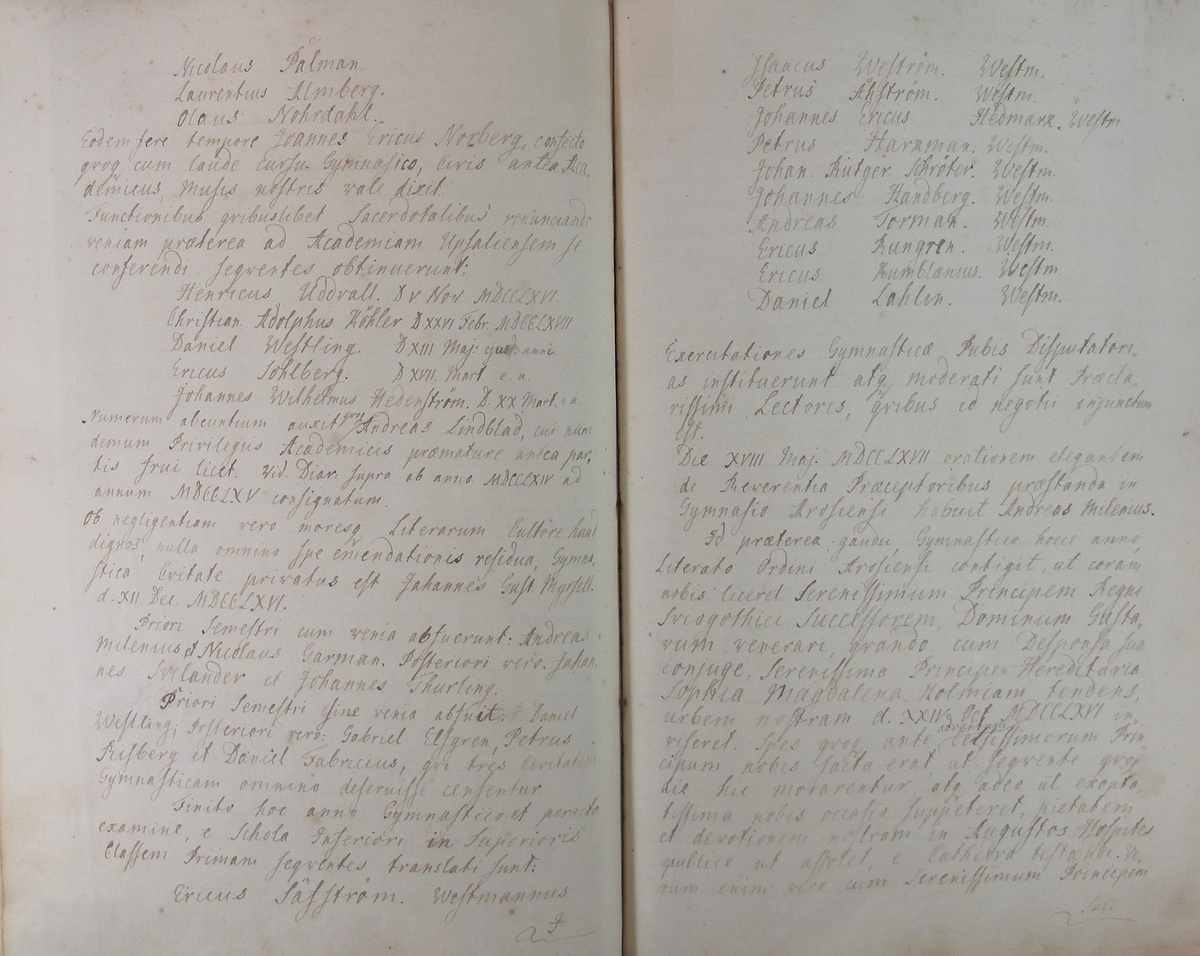 Nicolaus Pålman.
Laurentius Almberg.
Olaus Nohrdahl.
Eodem fere tempore Joannes Ericus Norberg, confecto
qvoq cum laude cursu Gymnasico, Civis antea Aca
demicus, Musis nostris vale dixit
Functionibus qvibuslibet Sacerdotalibus renunciando
veniam præterea ad Academiam Upsaliensem se
conferendi seqventes obtinuerunt:
Henricus Uddvall. D V Nov MDCCLXVI
Christian Adolphus Köhler D XXVI Febr. MDCCLXVII
Daniel Westling. D XIII Maj. ejusd. anni
Ericus Sohlberg. D XVII. Mart e. a.
Johannes Wilhelmus Hedenström. D. XX Mart. e a
Numerum abeuntium auxit Andreas Lindblad, cui nunc
demum Privilegiis Academicis præmature antea par,
tis frui licet. Vid. Diar. supra ob anno MDCCLXIV ad
annum MDCCLXV consignatum.
Ob negligentiam vero moresq Literarum Cultore haud
dignos, nulla omnino spe emendationis residua, Gymna,
stica Civitate privatus est Johannes Gust. Myrsell.
d. XII Dec. MDCCLXVI.
Priori Semestri cum venia abfuerunt: Andreas
Milenius & Nicolaus Garman. Posteriori vero. Johan,
nes Svelander et Johannes Thurling.
Priori Semestri sine venia abfuit: Daniel
Westling; Posteriori vero: Gabriel Elfgren, Petrus
Risberg et Daniel Fabricius, qvi tres Civitatem
Gymnasticam omnino deseruisse censentur
Finito hoc anno Gymnastico et peracto
examine, e Schola Inferiori in Superioris
Classem Primam seqventes translati sunt:
Ericus Säfström. Westmannus
Isaacus Weström. Westm.
Petrus Åhström. Westm.
Johannes Ericus Hedmark. Westm.
Petrus Harkman. Westm.
Johan Rutger Schröter. Westm.
Johannes Handberg. Westm.
Andreas Forman. Westm.
Ericus Rungren. Westm.
Ericus Kumblænius. Westm.
Daniel Lahlin. Westm.
Exercitationes Gymnasticæ Pubis Disputatori,
as instituerunt atq moderati sunt Præcla,
rissimi Lectores, qvibus id negotii injunctum
est.
Die XVIII Maj. MDCCLXVII orationem elegantem
de Reverentia Præceptoribus præstanda in
Gymnasio Arosiensi habuit Andreas Milenius.
Id præterea gaudii, Gymnastico hocce anno,
Literato Ordini Arosiensi contigit, ut coram
nobis liceret Serenissimum Principem Regni
Sviogothici Successorem, Dominum Gusta,
vum venerari, qvando cum Desponsa sua
conjuge, Serenissima Principe Hereditaria
Sophia Magdalena, Holmiam tendens,
urbem nostram d. XXIV Oct MDCCLXVI in,
viseret. Spes qvoq ante adventum Celsissimorum Prin
cipum nobis facta erat ut seqvente qvoq
die hic morarentur, atq adeo ut exopta,
tissima nobis occasio suppeteret, pietatem
et devotionem nostram in Augustos Hospites
publice ut assolet, e Cathedra testandi. Ve,
rum enim vero cum Serenissimum Principem